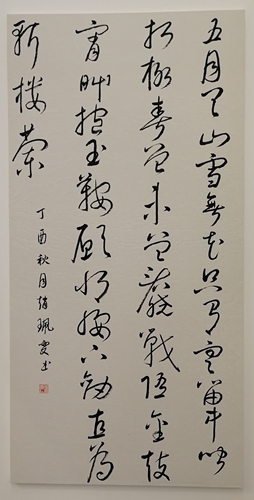 五月天山雪無花只有寒笛中聞
折柳春色未曾看曉戰随金鼓
宵眠抱玉鞍願将腰下劍直為
斬樓蘭
丁酉秋月 珮雯书